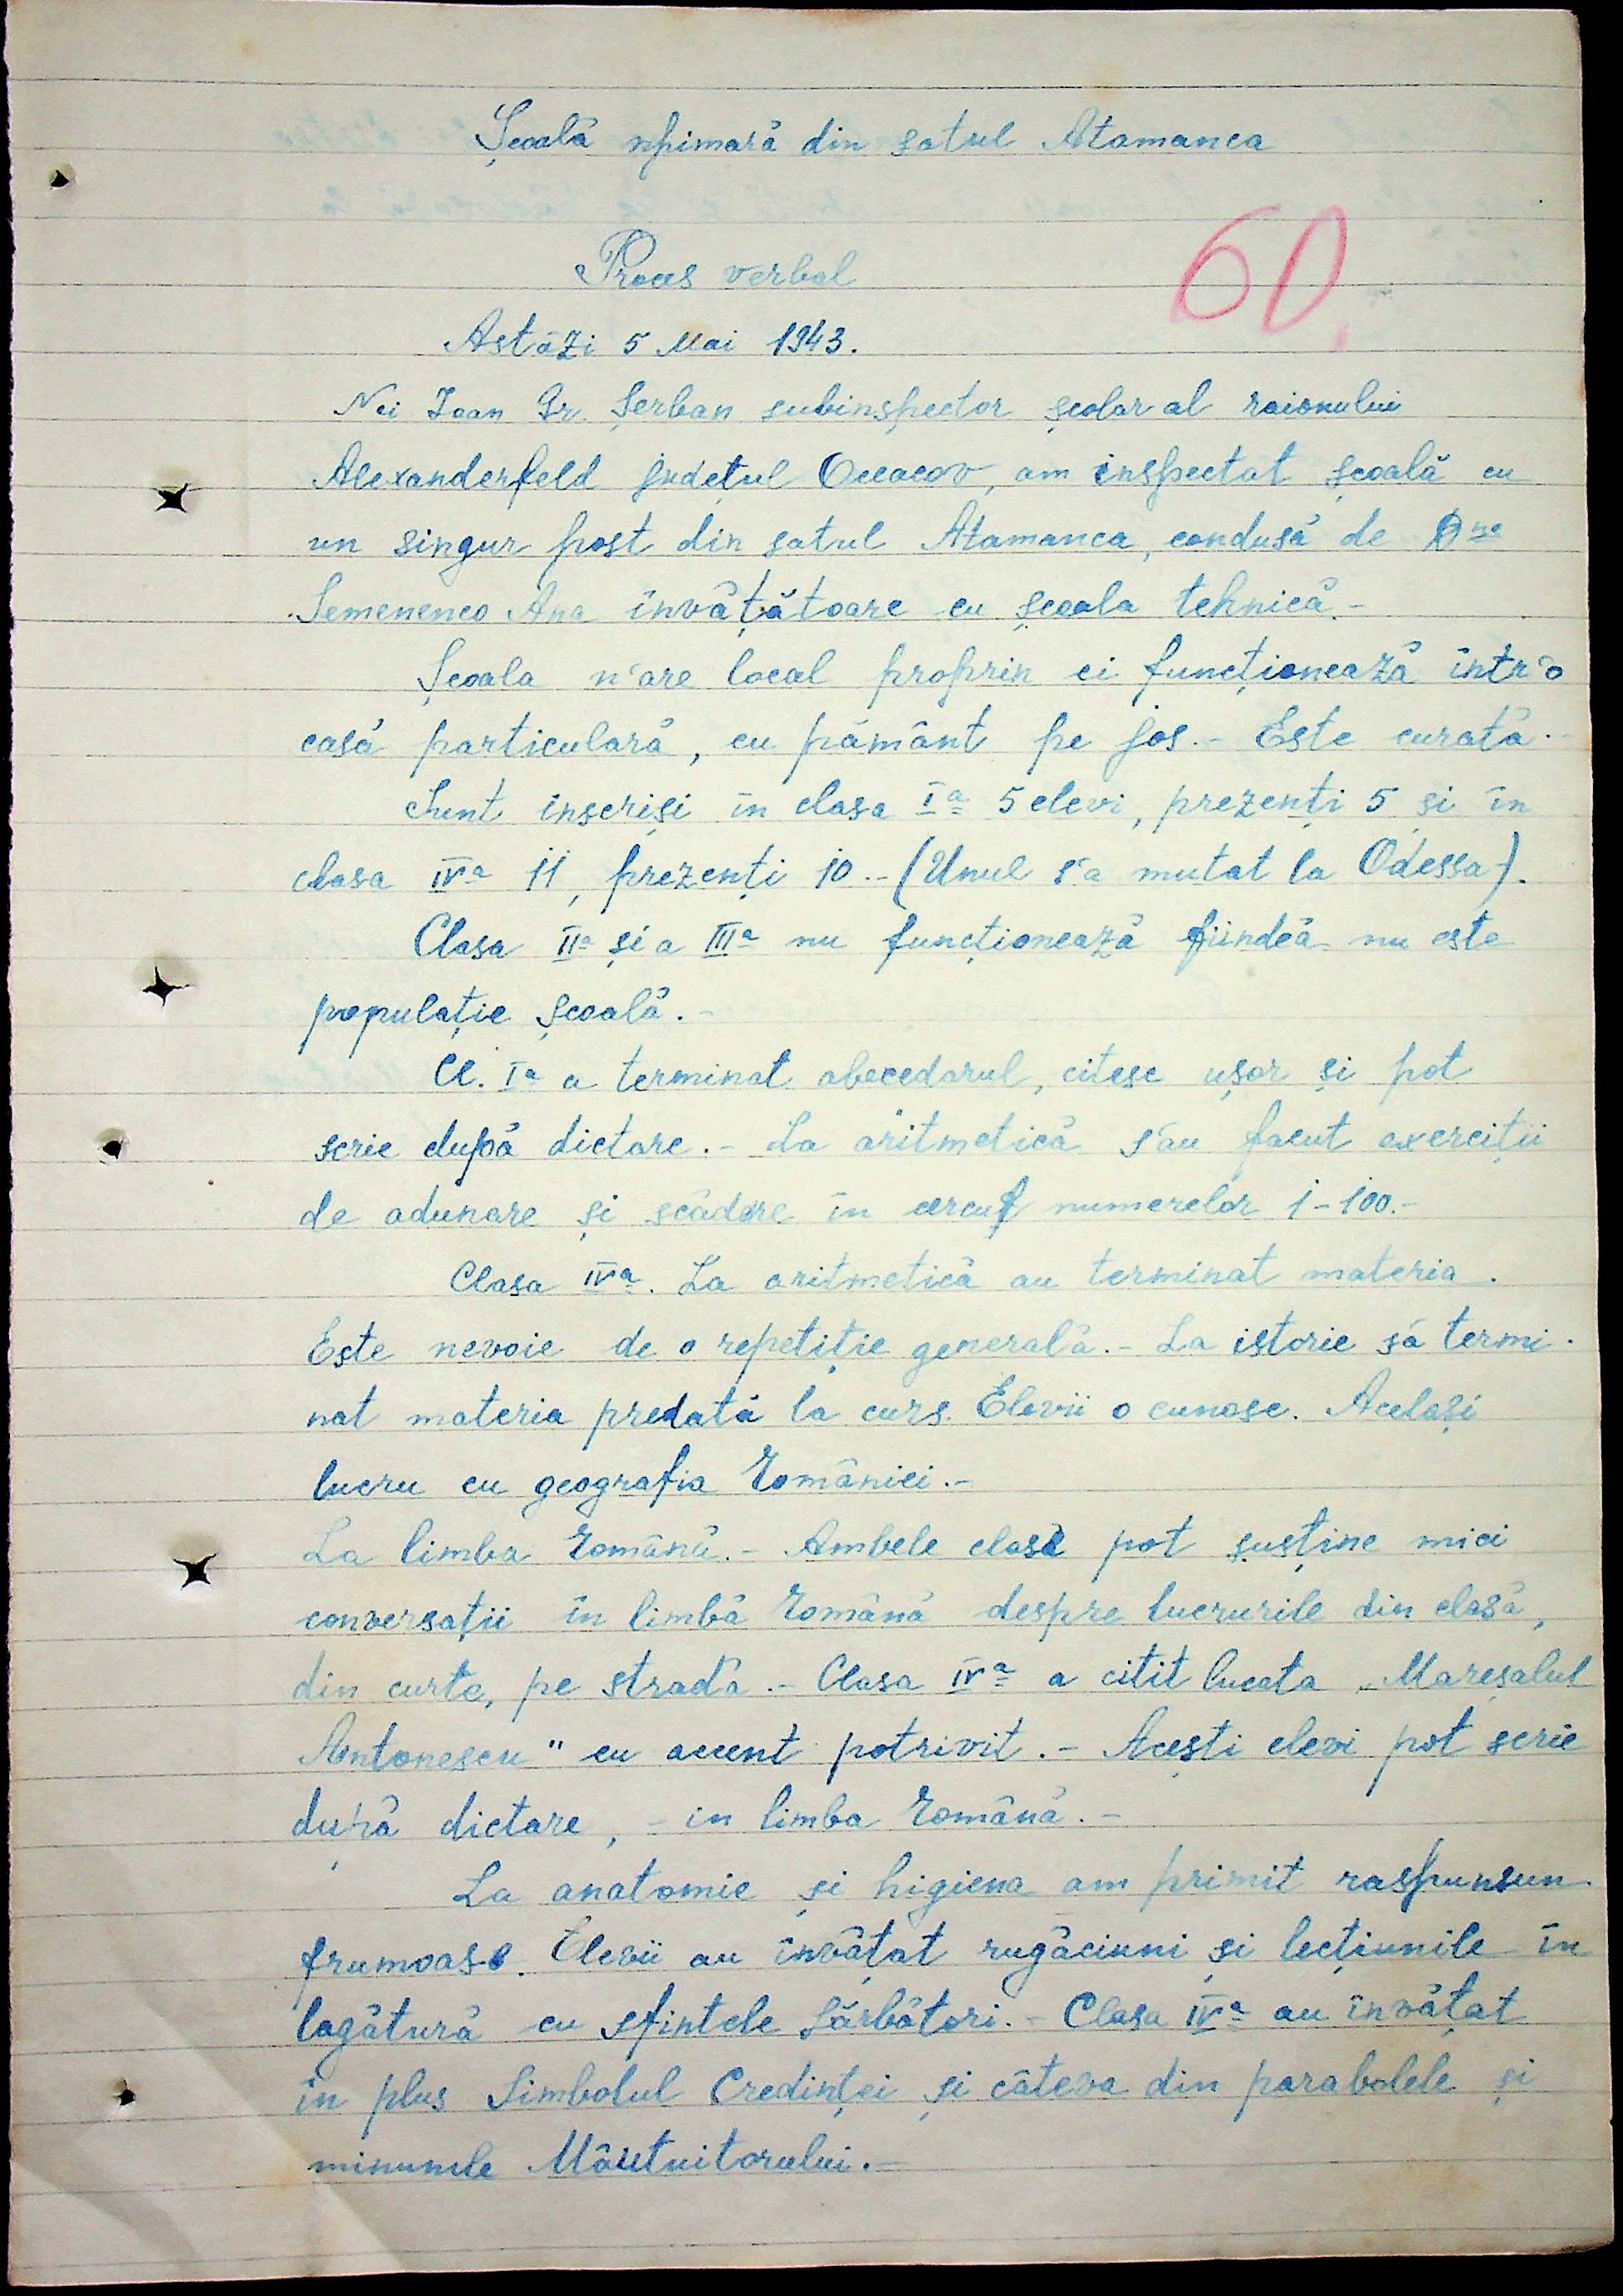 Școală npimară din satul Atamanca
60.
Proces verbal
Astăzi 5 Mai 1943.
Noi Ioan Gr. Șerban subinspector școlar al raionului
Alexanderfeld județul Oceacov, am inspectat școală cu
un singur post din satul Atamanca, condusă de D-na
Semenenco Ana învățătoare cu școala tehnică.-
Școala n'are local proprin ci funcționează într'o
casă particulară, cu pământ pe jos.- Este curată.-
Sunt inscriși în clasa Iª 5 elevi, prezenți 5 și în
clasa IVª 11, prezenți 10.- (Unul s'a mutat la Odessa).
Clasa IIª și a IIIª nu funcționează fiindcă nu este
populație școală.-
Cl. Iª a terminat abecedarul, citesc ușor și pot
scrie după dictare.- La aritmetică s'au facut exerciții
de adunare și scădere în cercul numerelor 1-100.-
Clasa IVª. La aritmetică au terminat materia.
Este nevoie de o repetiție generală.- La istorie să termi-
nat materia predată la curs. Elevii o cunosc. Același
lucru cu geografia României.-
La limba Română.- Ambele clase pot susține mici
conversații în limbă Română despre lucrurile din clasă,
din curte, pe stradă.- Clasa IVª a citit bucata „Mareșalul
Antonescu" cu accent potrivit.- Acești elevi pot scrie
după dictare, - in limba Română.-
La anatomie și higiena am primit raspunsun
frumoase. Elevii au învățat rugăciuni și lecțiunile în
lagătură cu sfintele sărbători.- Clasa IVª au învățat
în plus Simbolul Credinței și câteva din parabolele și
minunile Mântuitorului.-